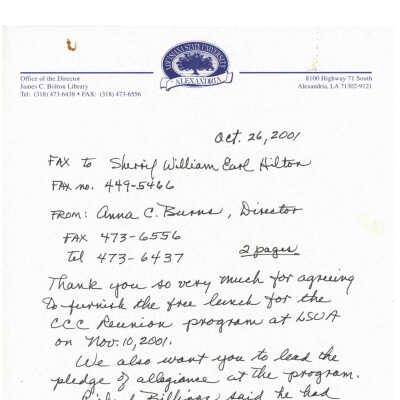 LOUISIANA STATE UNIVERSITY
ALEXANDRIA
Office of the Director
James C. Bolton Library
Tel: (318) 473-6438 • FAX: (318) 473-6556
8100 Highway 71 South
Alexandria, LA 71302-9121
Oct. 26, 2001
FAX to Sherril William Earl Hilton
FAX no. 449-5466
FROM: Anna C. Burns, Director
FAX 473-6556
Tel 473-6437
2 pages
Thank you so very much for agreeing
to furnish the free lunch for the
CCC Reunion program at LSUA
on Nov. 10, 2001.
We also want you to lead the
pledge of allegiance at the program.
Billings said he had